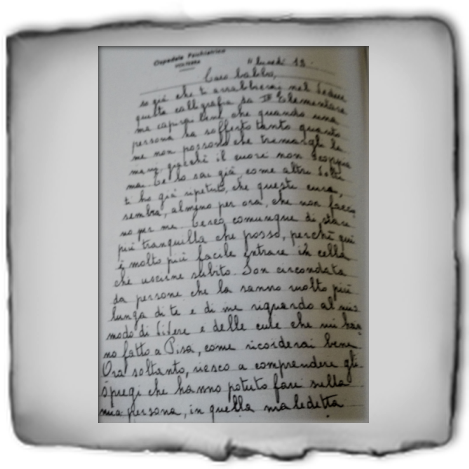 Ospedale Psichiatrico
VOLTERRA
lì lunedì 13.
Caro babbo,
so già che ti arrabbierai nel vedere
questa calligrafia da IIIª Elementare
ma capirai bene, che quando una
persona ha sofferto tanto quanto
me non possono che tremargli le
mani, giacchè il cuore non scoppia
mai. Ce lo sai già, come altre volte
t'ho già ripetuto, che queste cure,
sembra, almeno per ora, che non faccia
no per me. Cerco comunque di stare
più tranquilla che posso, perchè qui
è molto più facile entrare in cella
che uscirne subito. Son circondata
da persone che la sanno molto più
lunga di te e di me riguardo al mio
modo di vivere e delle cure che mi han
no fatto a Pisa, come ricorderai bene.
Ora soltanto, riesco a comprendere gli
spregi che hanno potuto fare sulla
mia persona, in quella maledetta